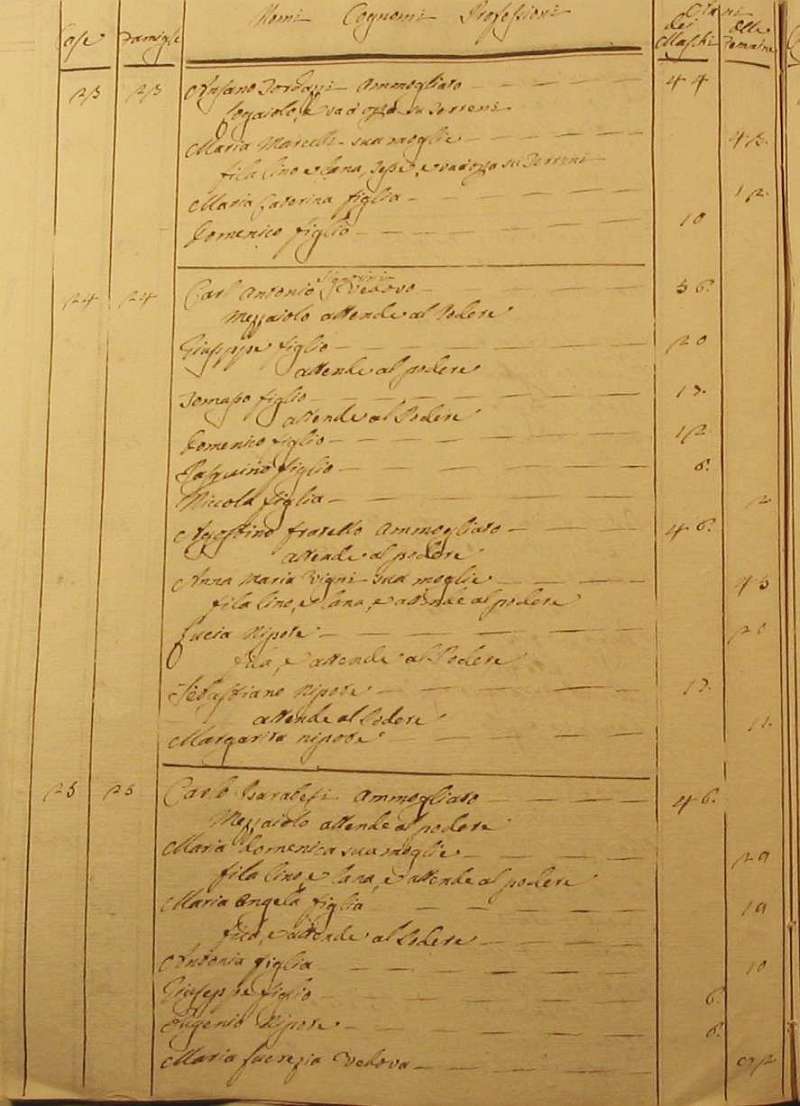 Case Famiglie Nomi Cognomi Professioni Età dei Maschi delle Femmine
23 23 Ansano Ammogliato 44
Pogaiolo, e va à opra su Terreni
Maria sua moglie 43.
fila lino e lana, Tesse, e va à opra su Terreni
Maria Caterina figlia 12.
Domenico figlio 10
24 24 Carl' Antonio Vedovo 56.
Mezzaiolo attende al Podere
Giuseppe figlio 20
attende al podere
Tomaso figlio 17.
attende al Podere
Domenico figlio 12.
Pasquino figlio 6.
Niccola figlia 2
Agostino fratello Ammogliato 46.
attende al podere
Anna Maria Vigni sua moglie 43
fila lino, e lana, e attende al podere
Lucia Nipote 20
fila, e attende al Podere
Sebastiano Nipote 17.
attende al Podere
Margarita nipote 11.
25 25 Carlo Ammogliato 46.
Mezzaiolo attende al podere
Maria Domenica sua moglie 29
fila lino e lana, e attende al podere
Maria Angela figlia 19
fila, e attende al Podere
Antonia figlia 10
Giuseppe figlio 6.
Eugenio Nipote 6.
Maria Lucrezia Vedova